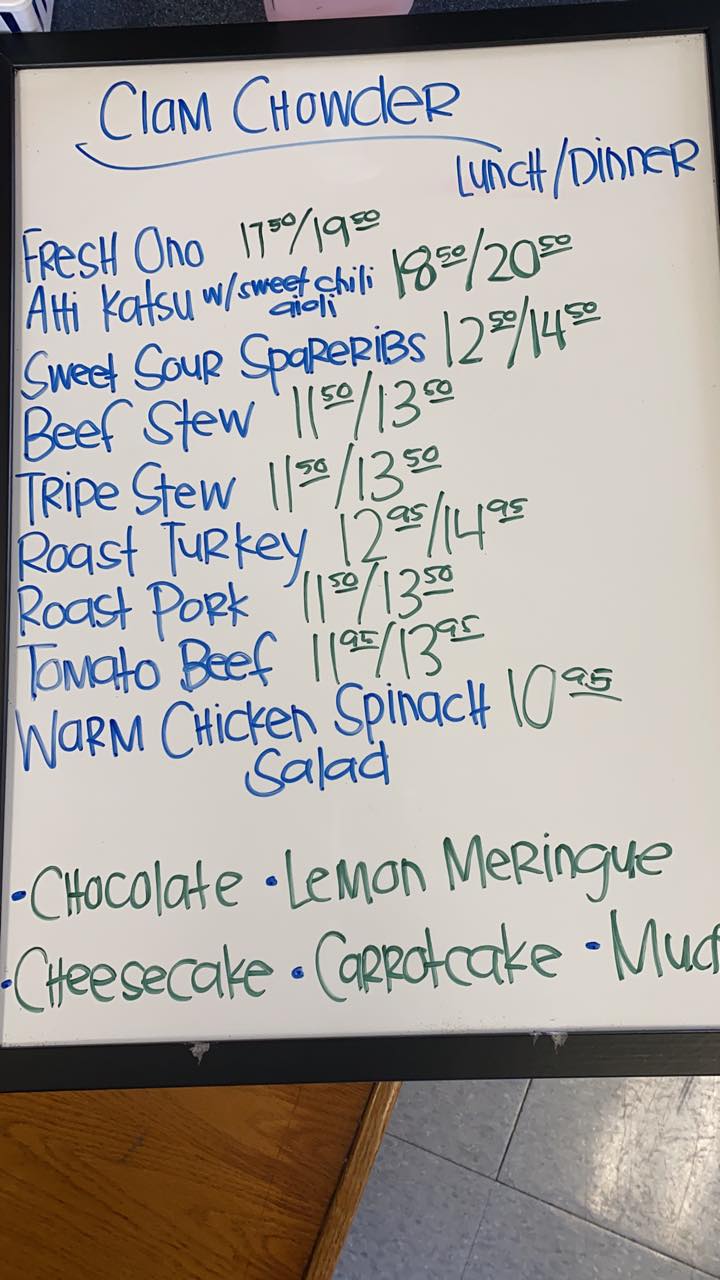 Clam Chowder
Lunch/Dinner
Fresh Ono 17⁵⁰/19⁵⁰
Ahi Katsu w/sweet chili aioli 18⁵⁰/20⁵⁰
Sweet Sour Spareribs 12⁵⁰/14⁵⁰
Beef Stew 11⁵⁰/13⁵⁰
Tripe Stew 11⁵⁰/13⁵⁰
Roast Turkey 12⁹⁵/14⁹⁵
Roast Pork 11⁵⁰/13⁵⁰
Tomato Beef 11⁹⁵/13⁹⁵
Warm Chicken Spinach 10⁹⁵
Salad
•Chocolate •Lemon Meringue
•Cheesecake •Carrotcake •Mud